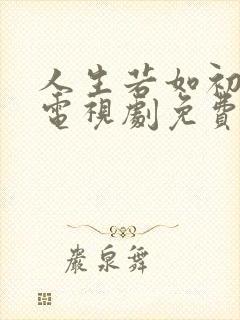 人生若如初
電視劇免費
嚴泉舞